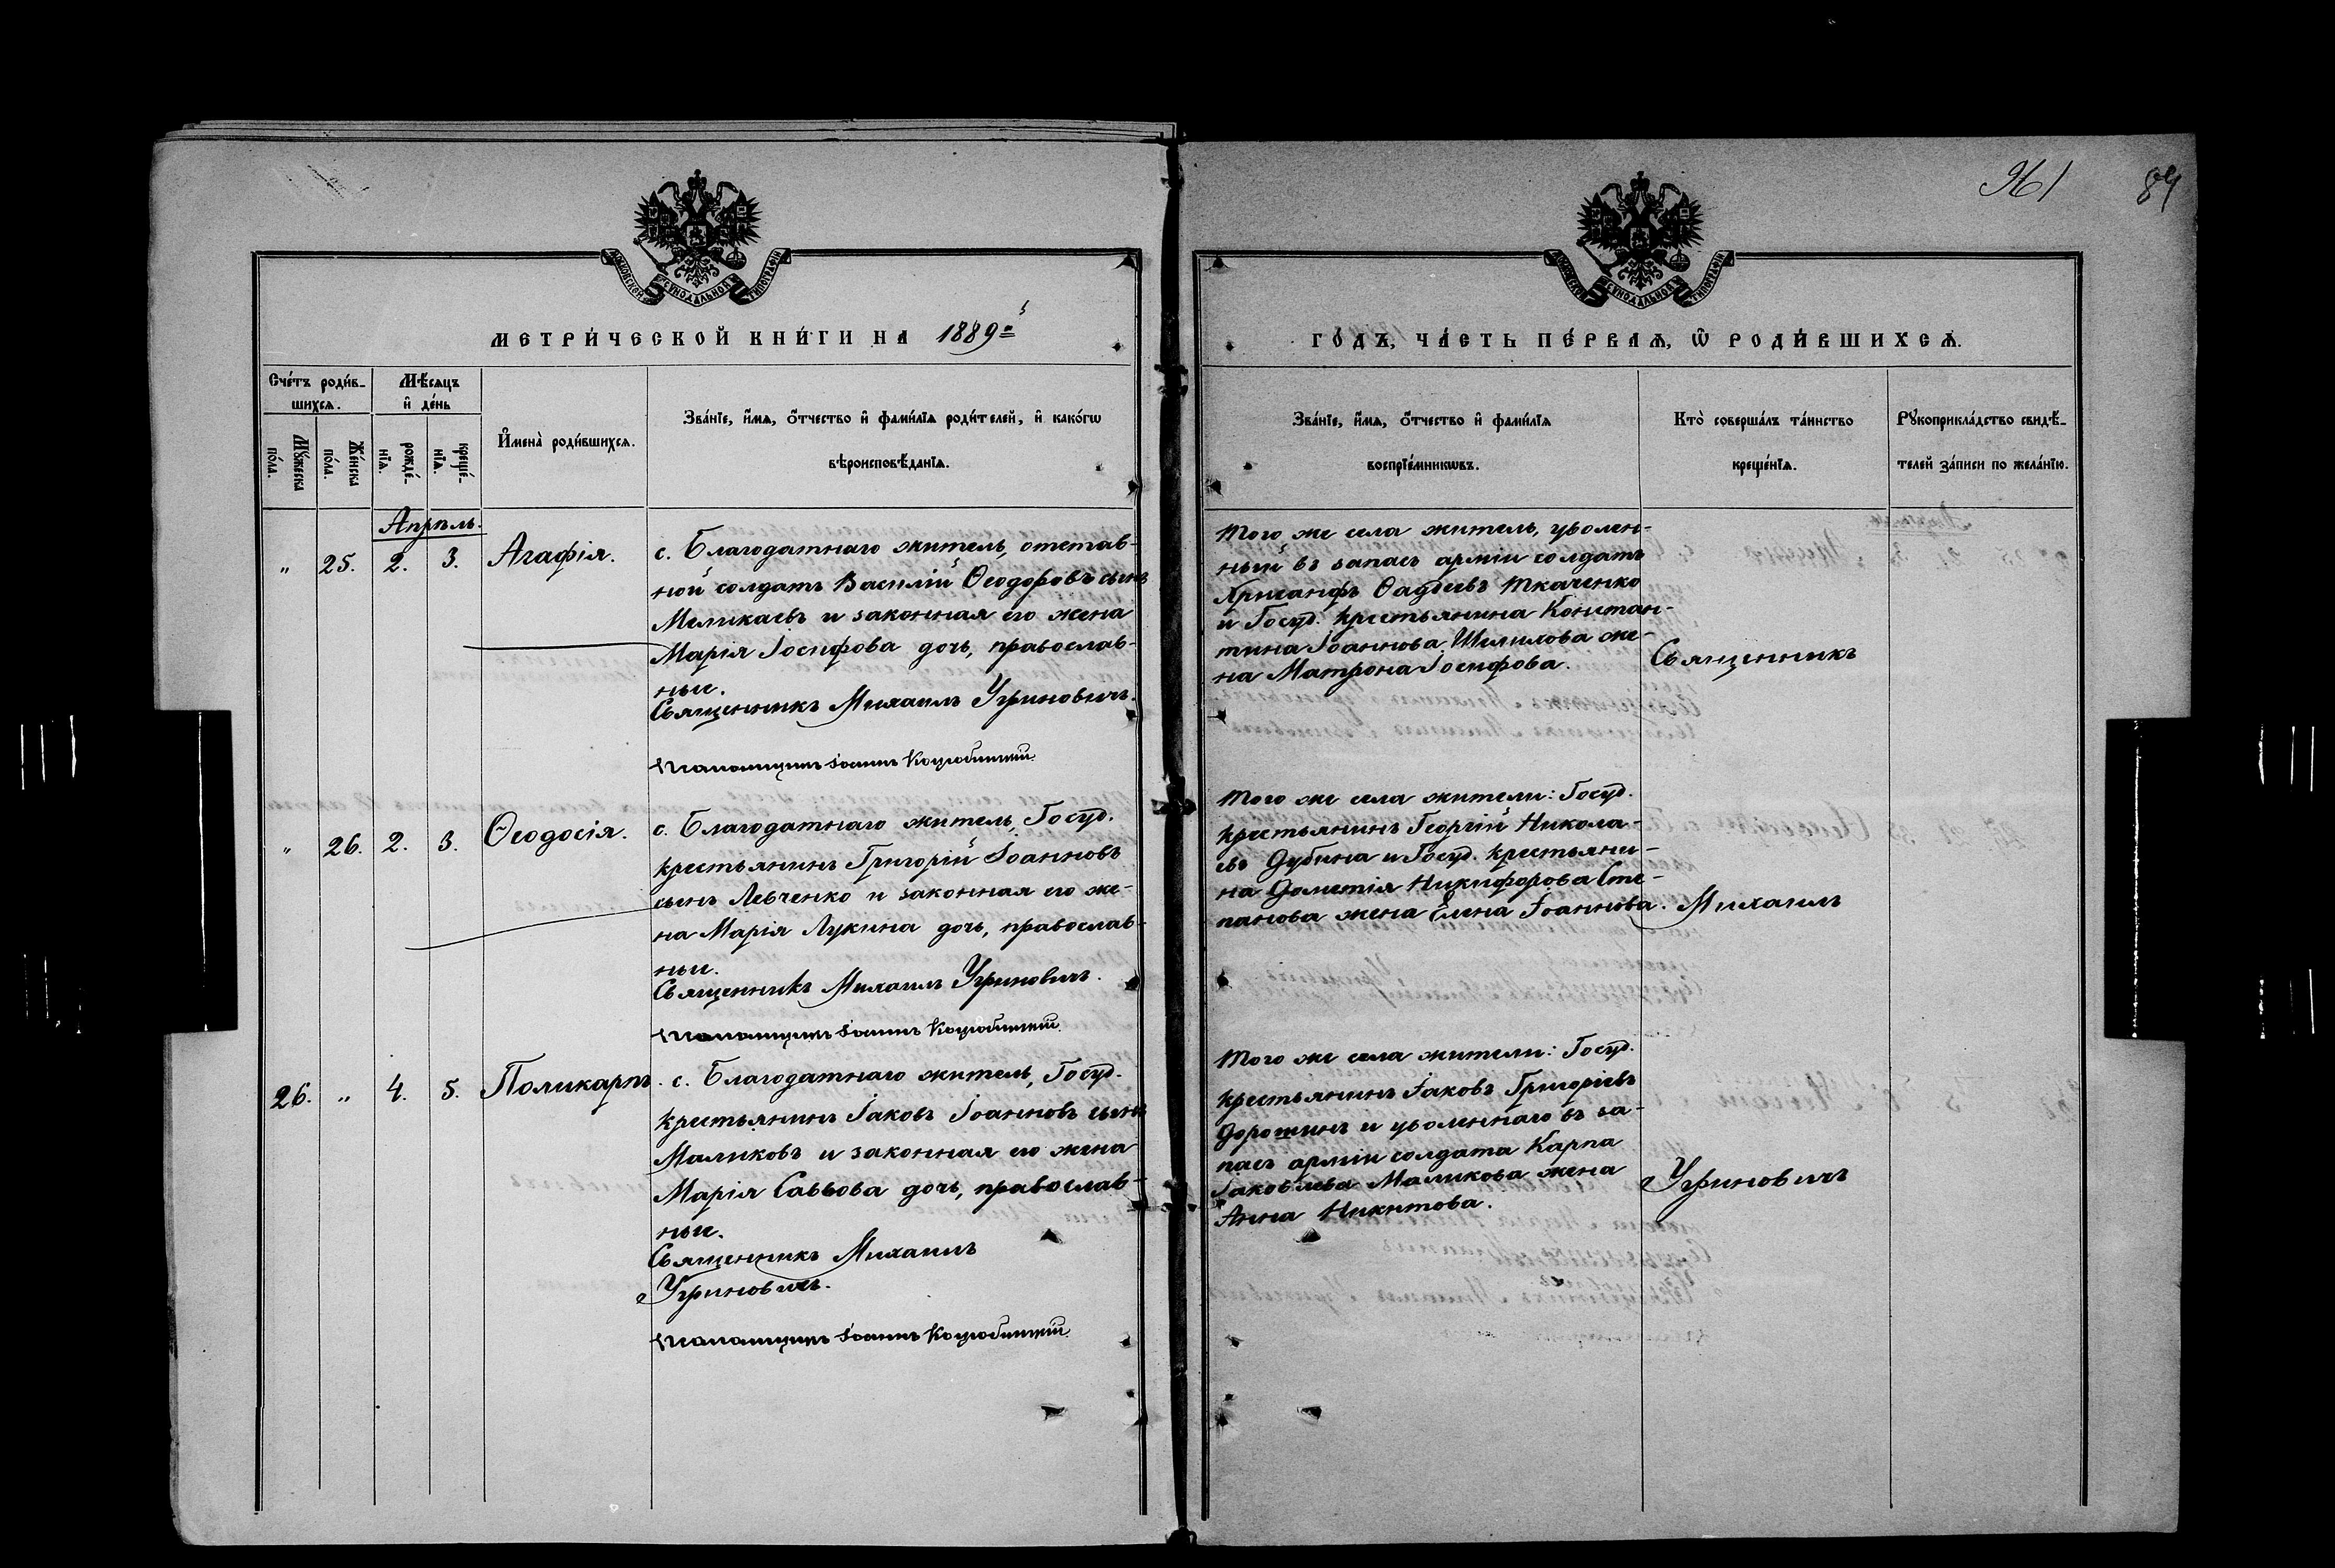 961 84
МОСКОВСКОЙ СѴНОДАЛЬНОЙ ТИПОГРАФІИ
МОСКОВСКОЙ СѴНОДАЛЬНОЙ ТИПОГРАФІИ
МЕТРИ́ЧЕСКОЙ КНИ́ГИ НА 1889й
ГО́ДЪ, ЧА́СТЬ ПЕ́РВАѦ, Ѽ РОДИ́ВШИХСѦ.
Сче́тъ роди́в-
шихсѧ.
Мѣ́сѧцъ
и҆ де́нь
Мꙋ́жеска
по́ла.
Же́нска
по́ла.
рожде́-
нїѧ.
креще́-
нїѧ.
И҆мена̀ роди́вшихсѧ.
Зва́нїе, и҆́мѧ, ѻ҆́тчество и҆ фами́лїѧ роди́телей, и҆ како́гѡ
вѣроисповѣ́данїѧ.
Зва́нїе, и҆́мѧ, ѻ҆́тчество и҆ фами́лїѧ
воспрїе́мникѡвъ.
Кто̀ соверша́лъ та́инство
креще́нїѧ.
Рꙋкоприкла́дство свидѣ́-
телей за́писи по жела́нїю.
Апрѣль.
" 25. 2. 3. Агафія.
с. Благодатнаго житель, отстав-
ной солдатъ Василій Ѳеодоровъ сынъ
Меликаевъ и законная его жена
Марія Іосифова дочь, православ-
ные.
Священникъ Михаилъ Угриновичъ.
Псаломщикъ Іоаннъ Коцюбинскій
Того же села житель, уволен-
ный въ запасъ арміи солдатъ
Хрисанфъ Ѳаддеевъ Ткаченко
и Госуд. крестьянина Констан-
тина Іоаннова Шемилова же-
на Матрона Іосифова.
Священникъ
" 26. 2. 3. Ѳеодосія.
с. Благодатнаго житель, Госуд.
крестьянинъ Григорій Іоанновъ
сынъ Левченко и законная его же-
на Марія Лукина дочь, православ-
ные.
Священникъ Михаилъ Угриновичъ.
Псаломщикъ Іоаннъ Коцюбинскій
Того же села жители: Госуд.
крестьянинъ Георгій Никола-
евъ Дубина и Госуд. крестьяни-
на Дометія Никифорова Сте-
панова жена Елена Іоаннова.
Михаилъ
26. " 4. 5. Поликарпъ.
с. Благодатнаго житель, Госуд.
крестьянинъ Іаковъ Іоанновъ сынъ
Маликовъ и законная его жена
Марія Саввова дочь, православ-
ные.
Священникъ Михаилъ
Угриновичъ.
Псаломщикъ Іоаннъ Коцюбинскій
Того же села жители: Госуд.
крестьянинъ Іаковъ Григоріевъ
Дорошинъ и уволеннаго въ за-
пасъ арміи солдата Карпа
Іаковлева Маликова жена
Анна Никитова.
Угриновичъ